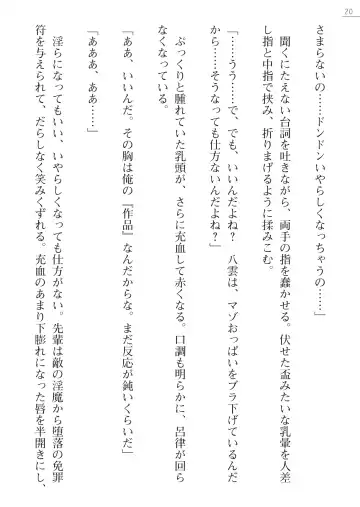 20
さまらないの……ドンドンいやらしくなっちゃうの……」
聞くにたえない台詞を吐きながら、両手の指を蠢かせる。伏せた盃みたいな乳暈を人差
し指と中指で挟み、折りまげるように揉みこむ。
「……うう……で、でも、いいんだよね？　八雲は、マゾおっぱいをブラ下げているんだ
から……そうなっても仕方ないんだよね？」
ぷっくりと腫れていた乳頭が、さらに充血して赤くなる。口調も明らかに、呂律が回ら
なくなっている。
「ああ、いいんだ。その胸は俺の『作品』なんだからな。まだ反応が鈍いくらいだ」
「あああ、ああ……」
淫らになってもいい、いやらしくなっても仕方がない。先輩は敵の淫魔から堕落の免罪
符を与えられて、だらしなく笑みくずれる。充血のあまり下膨れになった唇を半開きにし、